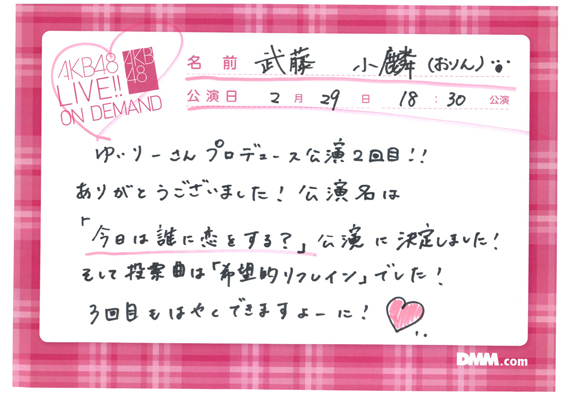 AKB48
LIVE!!
ON DEMAND
AKB
48
名前 武藤 小麟(おりん)
公演日 2月29日 18:30公演
ゆいりーさんプロデュース公演2回目!!
ありがとうございました!公演名は
「今日は誰に恋をする?」公演に決定しました!
そして投案曲は「希望的リフレイン」でした!
3回目もはやくできますよーに!
DMM.com